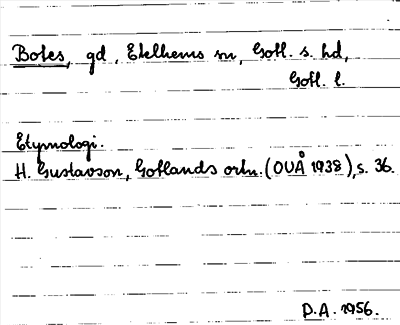 Botes, gd, Etelhems sn, Gotl. s. hd,
Gotl. l.
Etymologi.
H. Gustavson, Gotlands ortn. (OUÅ 1938), s. 36.
D.A. 1956.